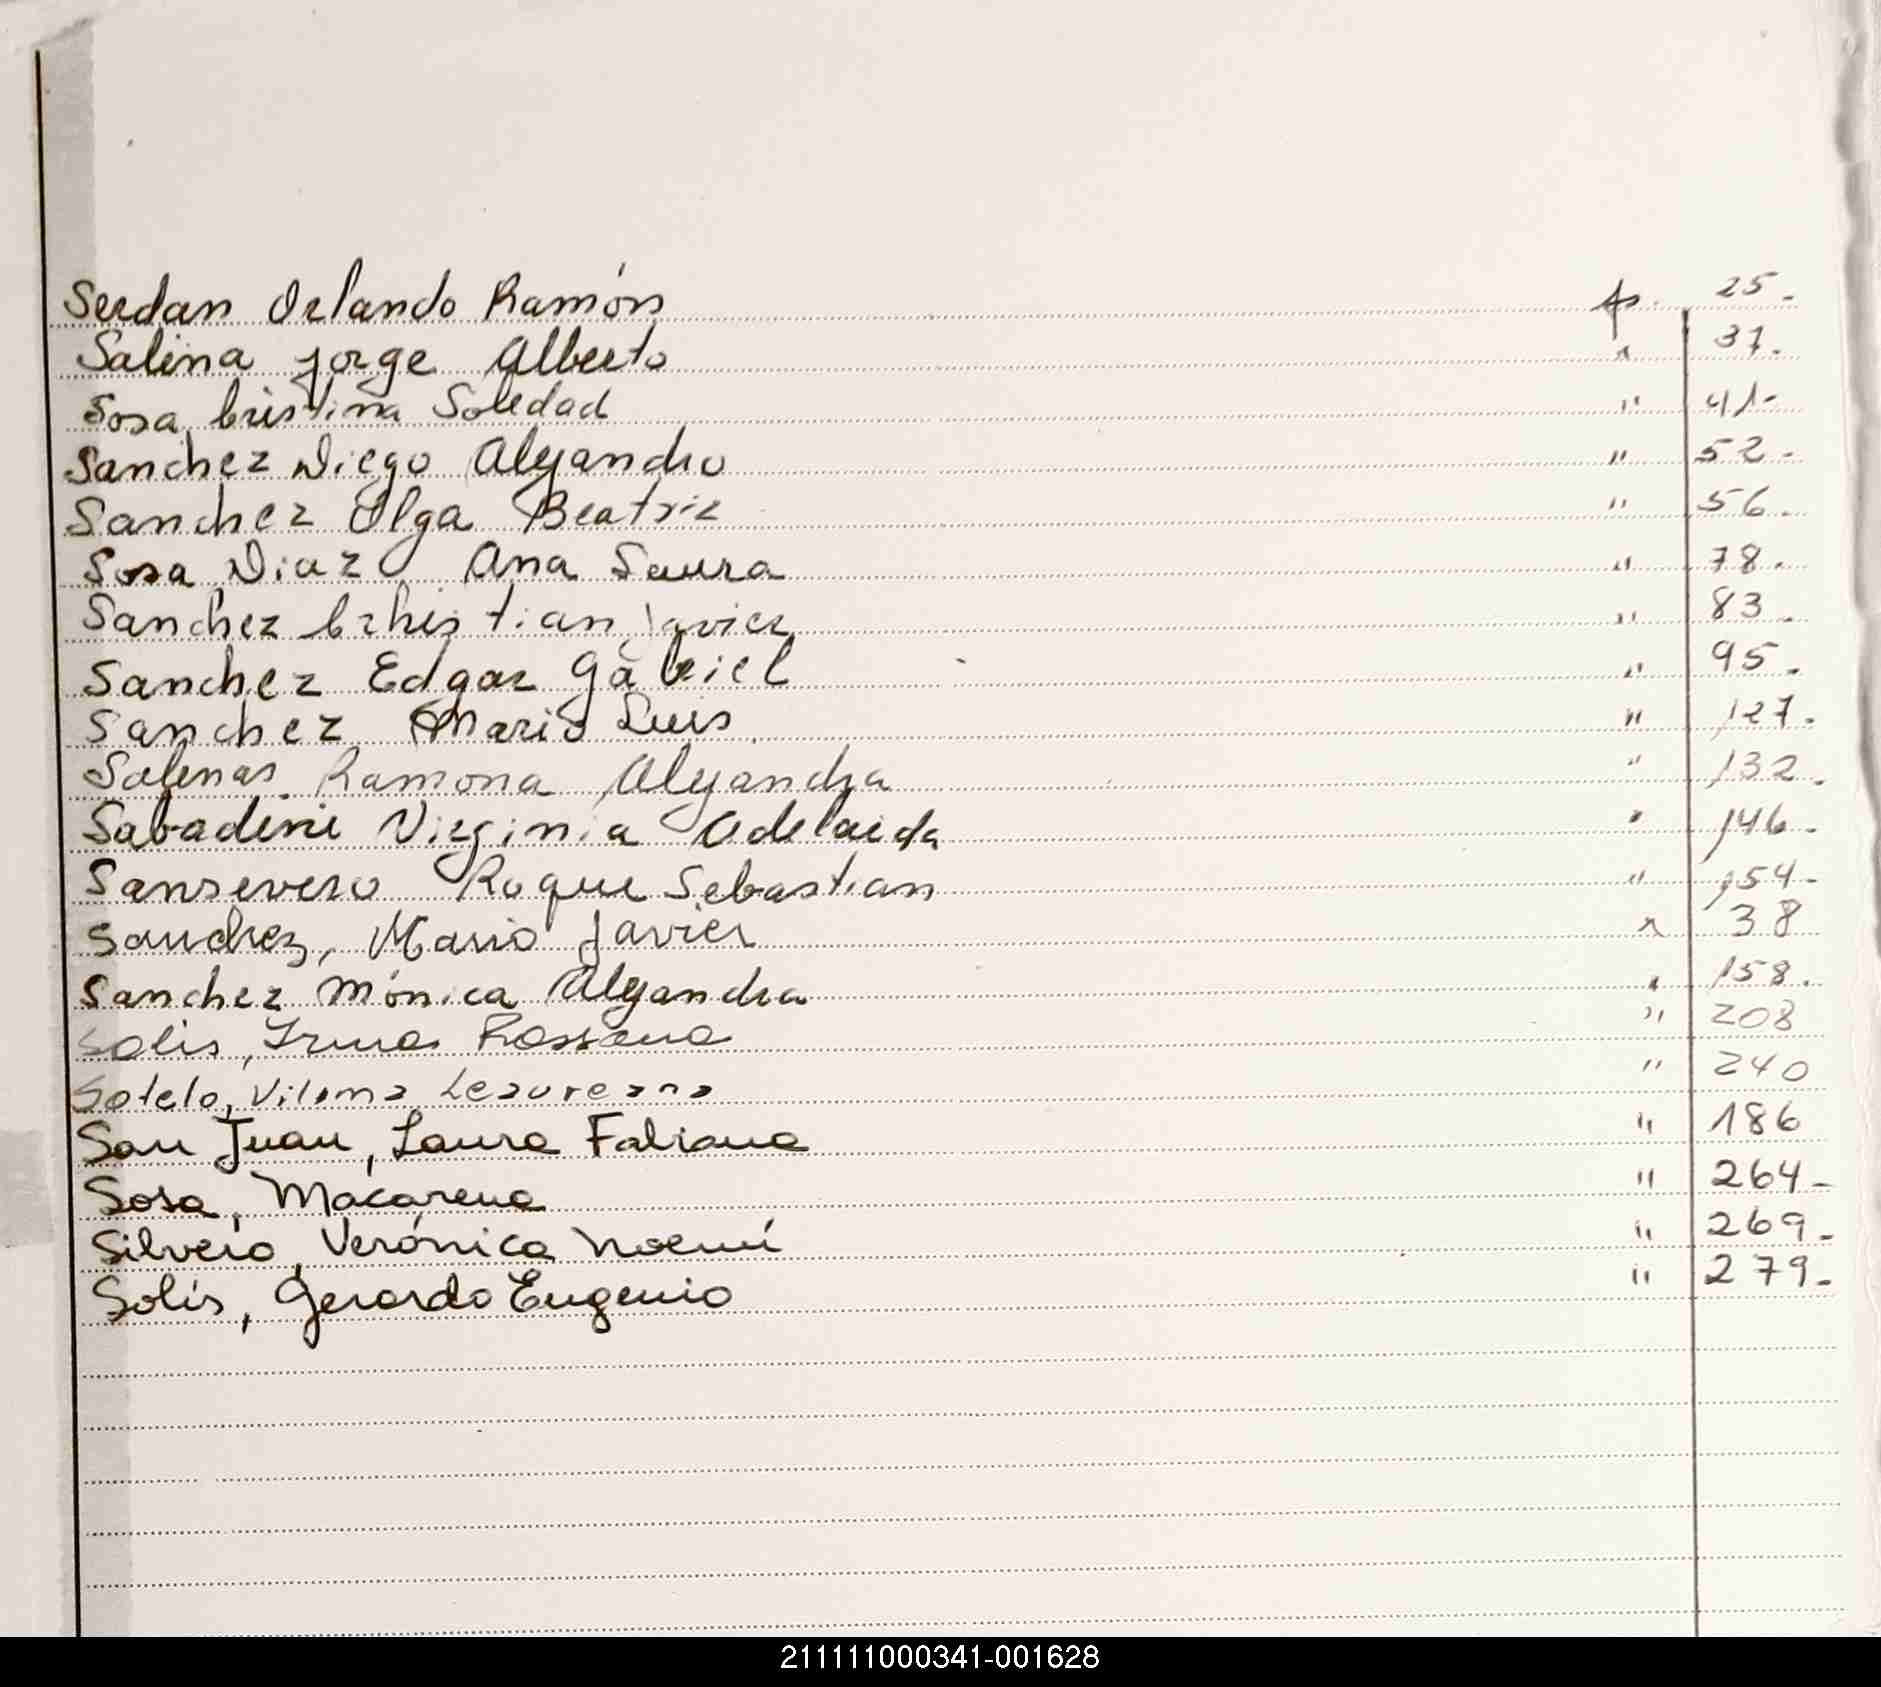 Serdan Orlando Ramón fs. 25.
Salina Jorge Alberto " 37.
Sosa Cristina Soledad " 41-
Sanchez Diego Alejandro " 52-
Sanchez Olga Beatriz " 56.
Sosa Diaz Ana Laura " 78.
Sanchez Crhistian Javier " 83.
Sanchez Edgar Gabriel " 95.
Sanchez Mario Luis " 127.
Salinas Ramona Alejandra " 132.
Sabadini Virginia Adelaida " 146.
Sansevero Roque Sebastian " 154-
Sanchez, Mario Javier " 38
Sanchez Mónica Alejandra " 158.
Solis, Irma Rossana " 208
Sotelo, Vilma " 240
San Juan, Laura Fabiana " 186
Sosa, Macarena " 264-
Silverio, Verónica Noemí " 269.
Solís, Gerardo Eugenio " 279.
211111000341-001628